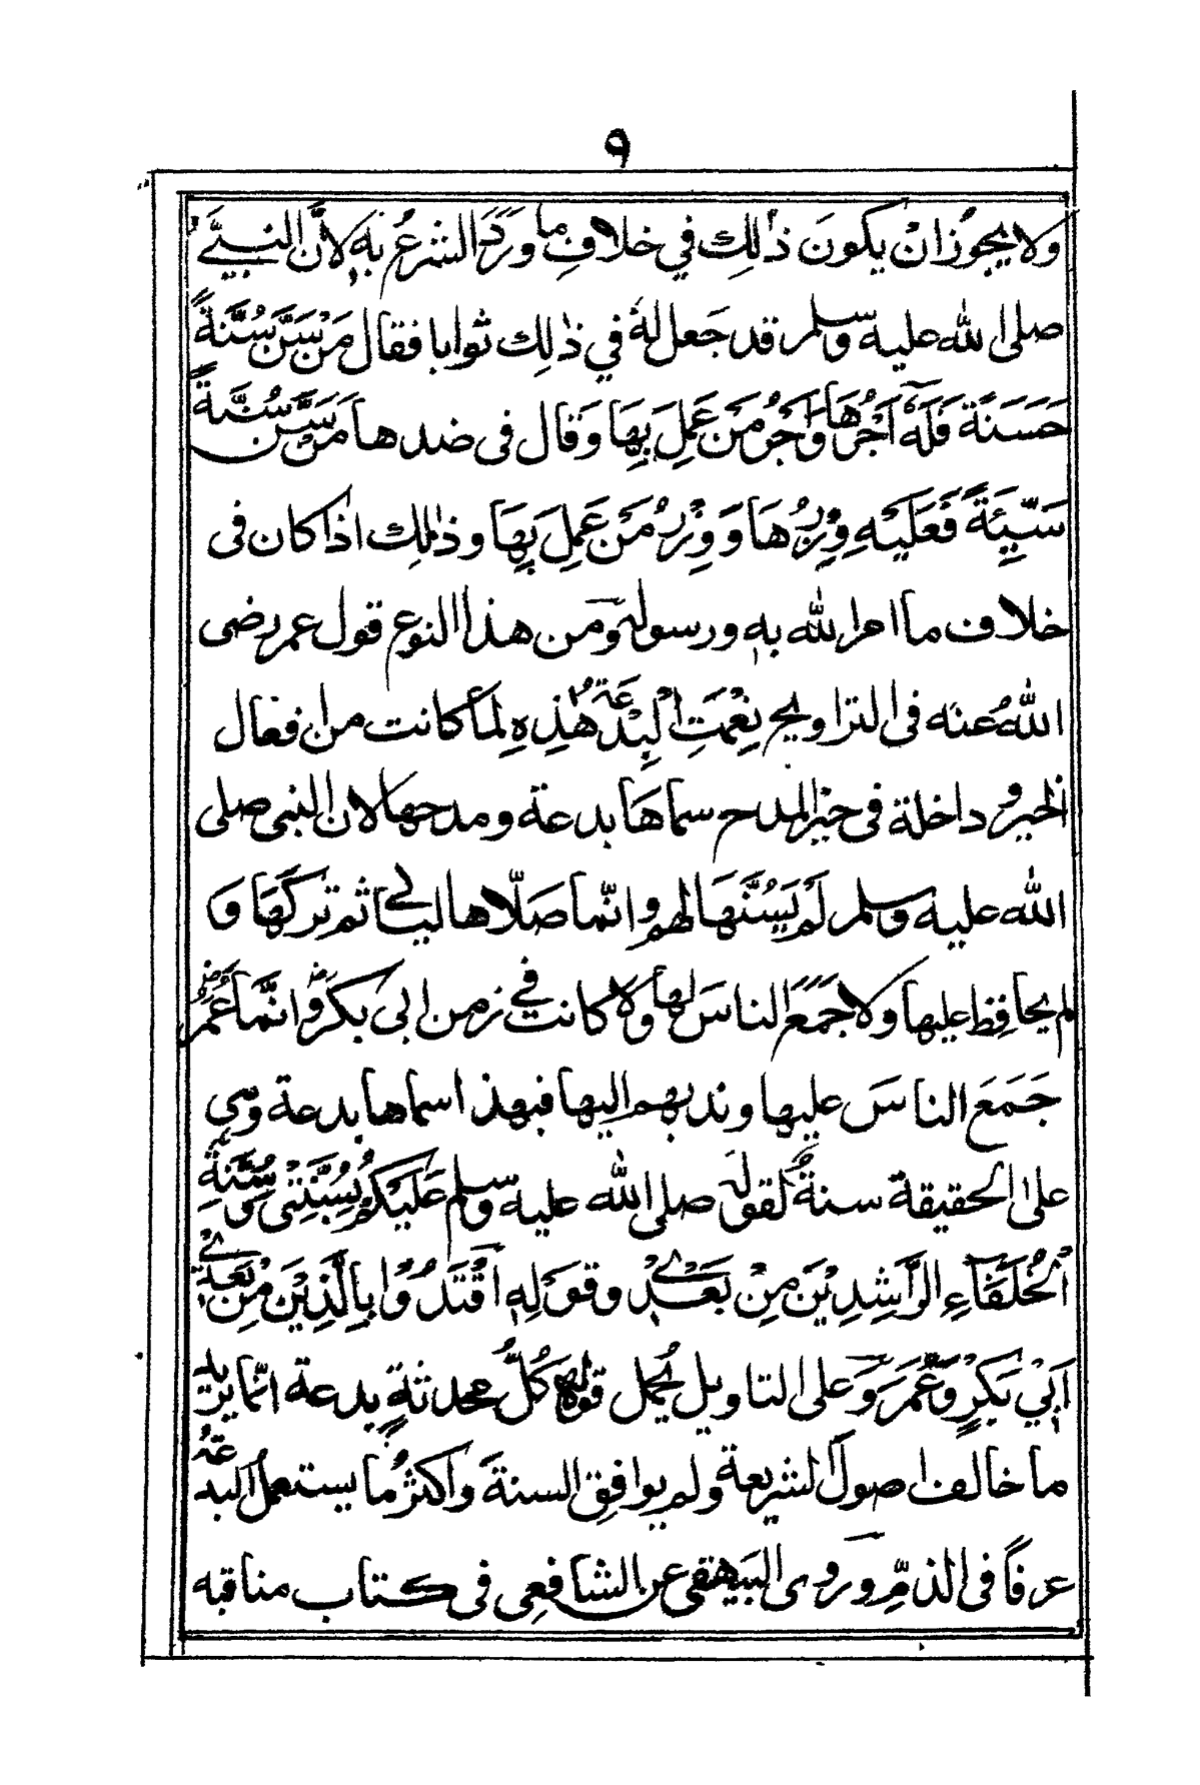 ٩
ولا يجوز ان يكون ذٰلك في خلاف ما ورد الشرع به لأن النبيّ
صلى الله عليه وسلم قد جعل له في ذٰلك ثوابا فقال مَنْ سَنَّ سُنَّةً
حَسَنَةً فَلَهٗ اَجْرُهَا وَاَجْرُ مَنْ عَمِلَ بِهَا وَقال فى ضدها مَنْ سَنَّ سُنَّةً
سَيِّئَةً فَعَلَيْهِ وِزْرُهَا وَ وِزْرُ مَنْ عَمِلَ بِهَا وذٰلك اذا كان فى
خلاف ما امر الله به ورسوله ومن هذا النوع قول عمر رضى
اللهُ عنه فى التراويح نِعْمَتِ الْبِدْعَةُ هٰذِهٖ لما كانت من افعال
الخير و داخلة فى حيز المدح سماهَا بدعة و مدحها لان النبى صلى
الله عليه وسلم لَمْ يَسُنَّهَا لهم و انّما صَلّاها ليالي ثم تركَهَا وَ
لم يحافظ عليها وَلا جَمَعَ الناسَ لها ولا كانت في زمن ابى بكرؓ وانّما عُمَرُؓ
جَمَعَ الناسَ عليها وندبهم اليها فبهذا سماها بدعة وهي
على الحقيقة سنةٌ لقوله صلى الله عليه وسلم عَلَيْكُمْ بِسُنَّتِىْ وَ سُنَّةِ
الْخُلَفَآءِ الرَّاشِدِيْنَ مِنْ بَعْدِيْ وقوله اقْتَدُوْا بِالَّذِيْنَ مِنْ بَعْدِيْ
اَبِيْ بَكْرٍ وَّعُمَرَ وَعلى التاويل يُحمل قوله كُلُّ محدثةٍ بدعة انّما يريد
ما خالف اصول الشريعة ولم يوافق السنة وَاكثرُ ما يستعمل البدعةُ
عرفاً فى الذمّ و روى البيهقى عن الشافعى فى كتاب مناقبه